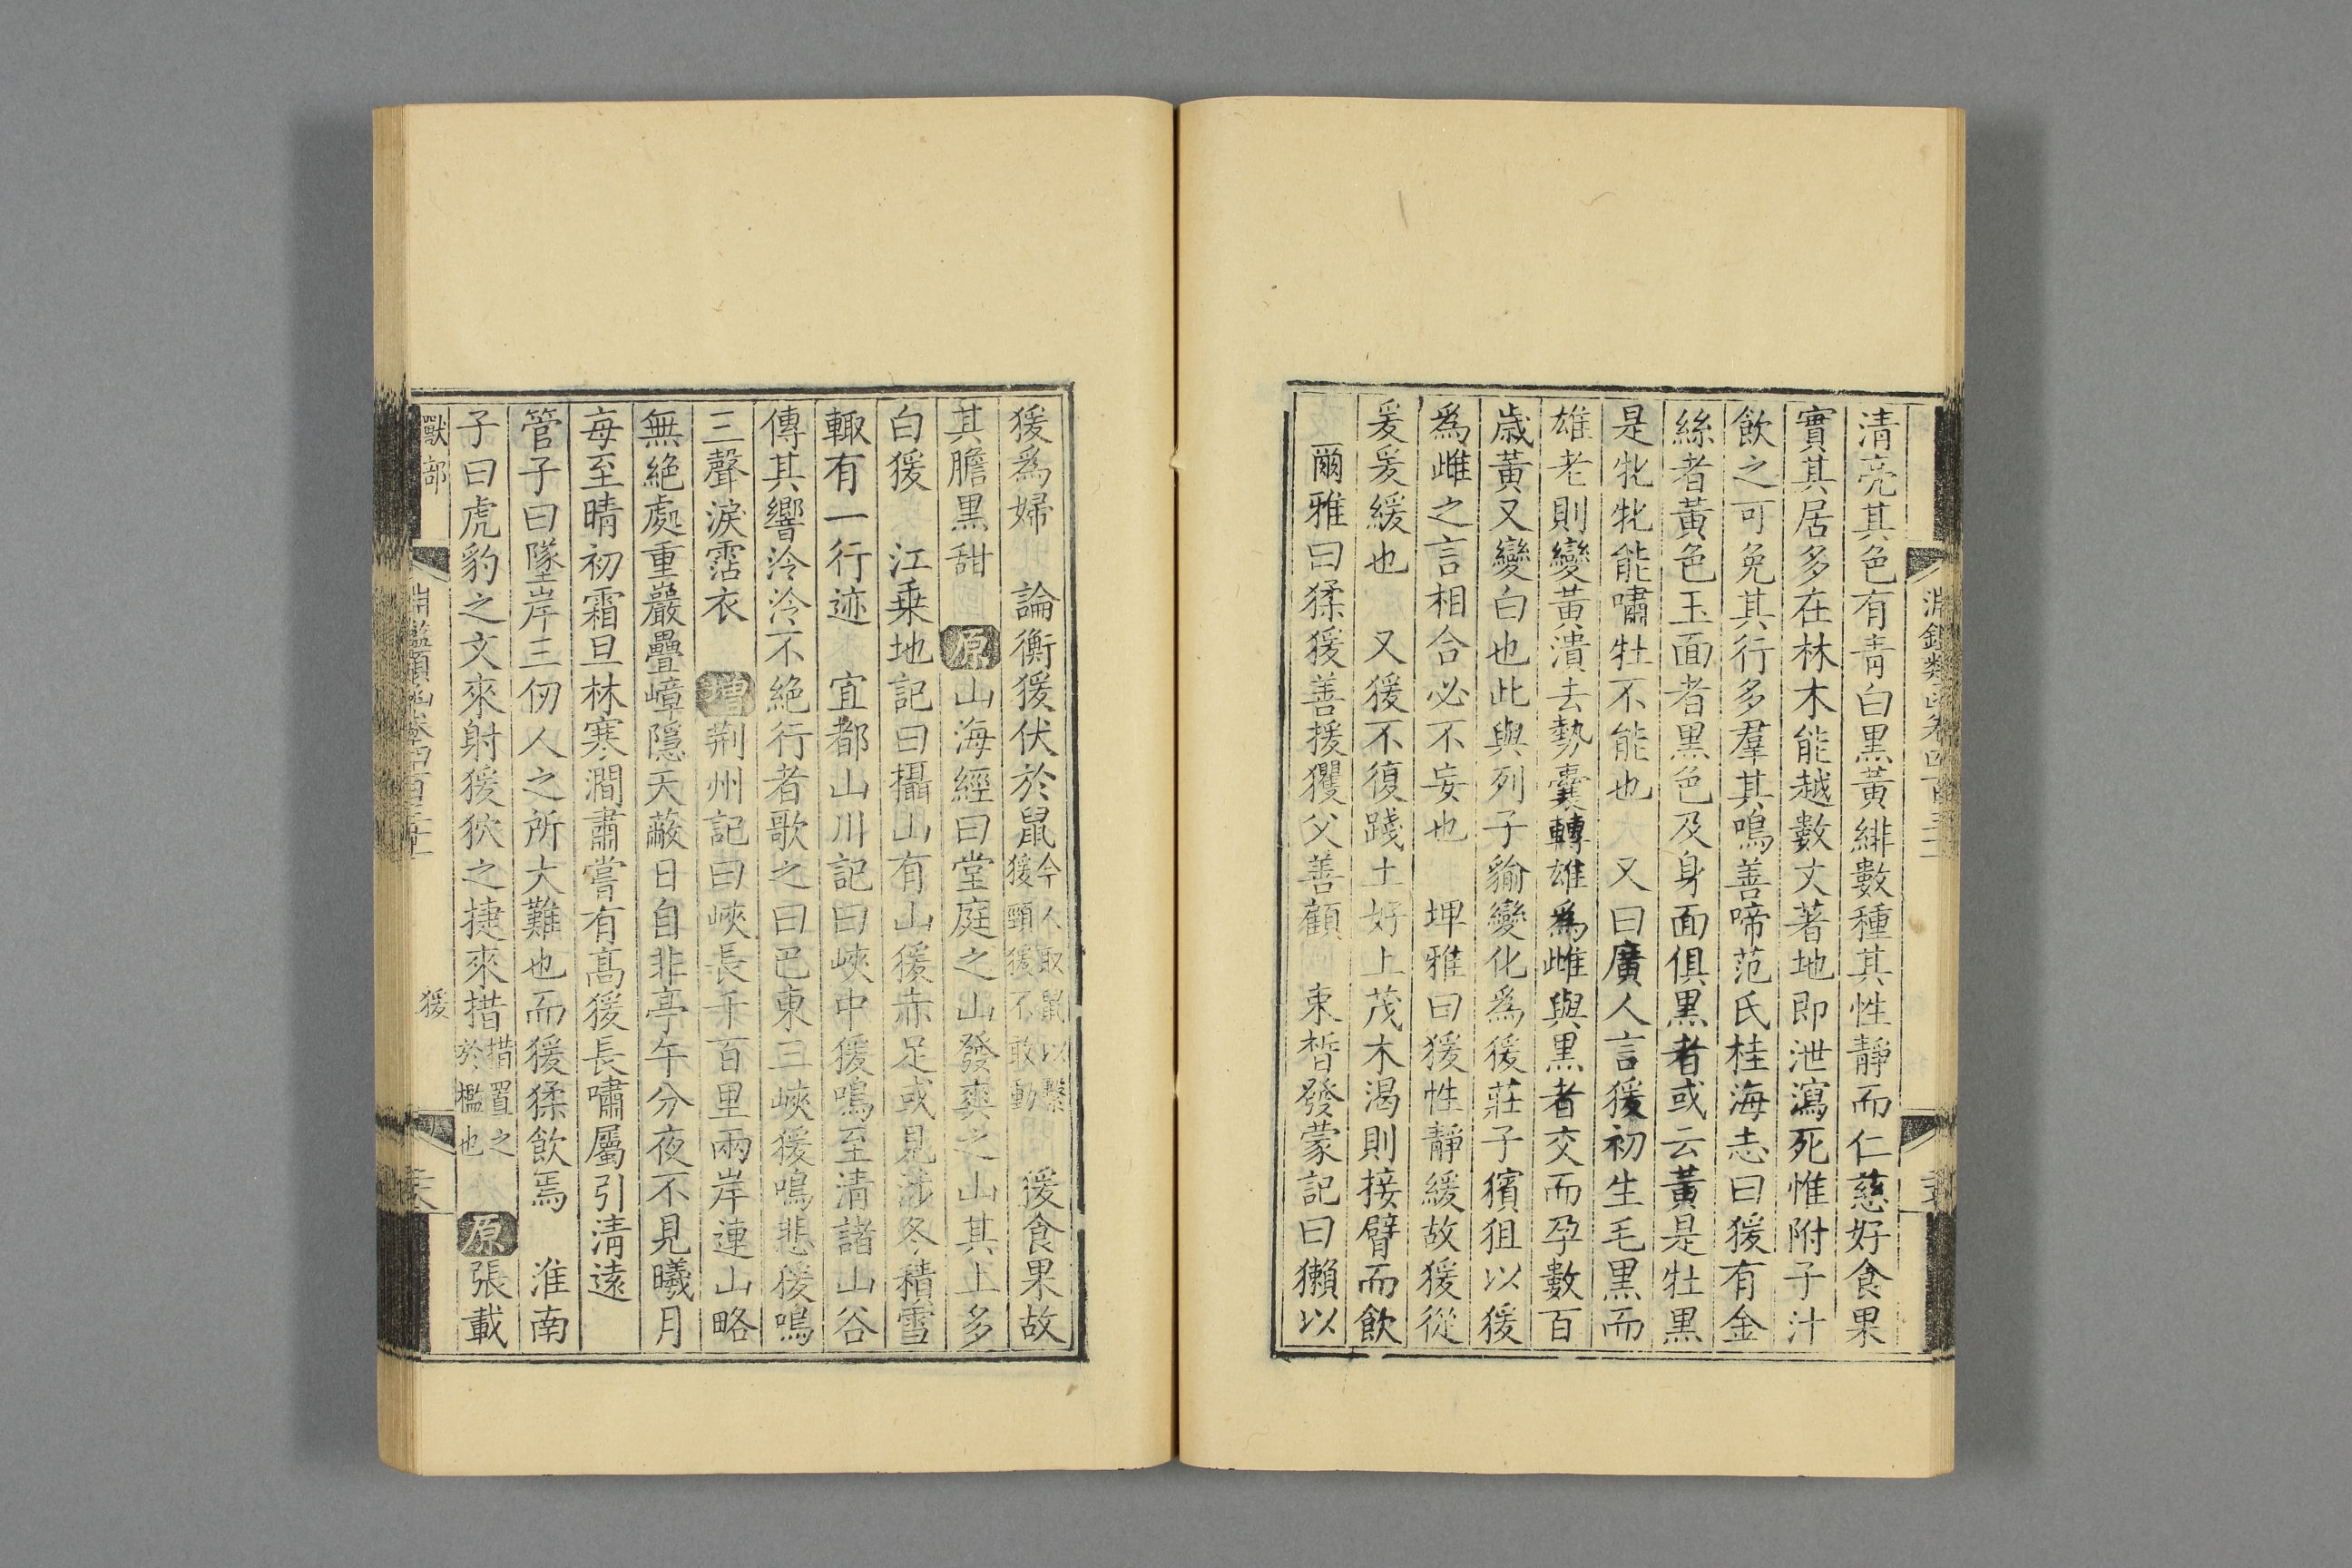 清亮其色有青白黑黃緋數種其性靜而仁慈好食果
實其居多在林木能越數丈著地即泄瀉死惟附子汁
飲之可免其行多羣其鳴善啼范氏桂海志曰猨有金
絲者黃色玉面者黑色及身面俱黑者或云黃是牡黑
是牝牝能嘯牡不能也 又曰廣人言猨初生毛黑而
雄老則變黃潰去勢囊轉雄爲雌與黑者交而孕數百
歲黃又變白也此與列子貐變化爲猨莊子獱狙以猨
爲雌之言相合必不妄也 埤雅曰猨性靜緩故猨從
爰爰緩也 又猨不復踐土好上茂木渴則接臂而飲
爾雅曰猱猨善援玃父善顧 束晳發蒙記曰獺以
猨爲婦 論衡猨伏於鼠今人取鼠以繫猨頸猨不敢動 猨食果故
其膽黑甜 原山海經曰堂庭之山發爽之山其上多
白猨 江乗地記曰攝山有山猨赤足或見涉冬積雪
輙有一行迹 宜都山川記曰峽中猨鳴至清諸山谷
傳其響泠泠不絕行者歌之曰巴東三峽猨鳴悲猨鳴
三聲淚霑衣 增荆州記曰峽長千百里兩岸連山略
無絕處重巖疊嶂隱天蔽日自非亭午分夜不見曦月
每至晴初霜旦林寒澗肅嘗有高猨長嘯屬引清遠
管子曰墜岸三仞人之所大難也而猨猱飲焉 淮南
子曰虎豹之文來射猨狖之捷來措措置之於檻也 原張載
獸部 淵鑑類函卷四百三十二 猨